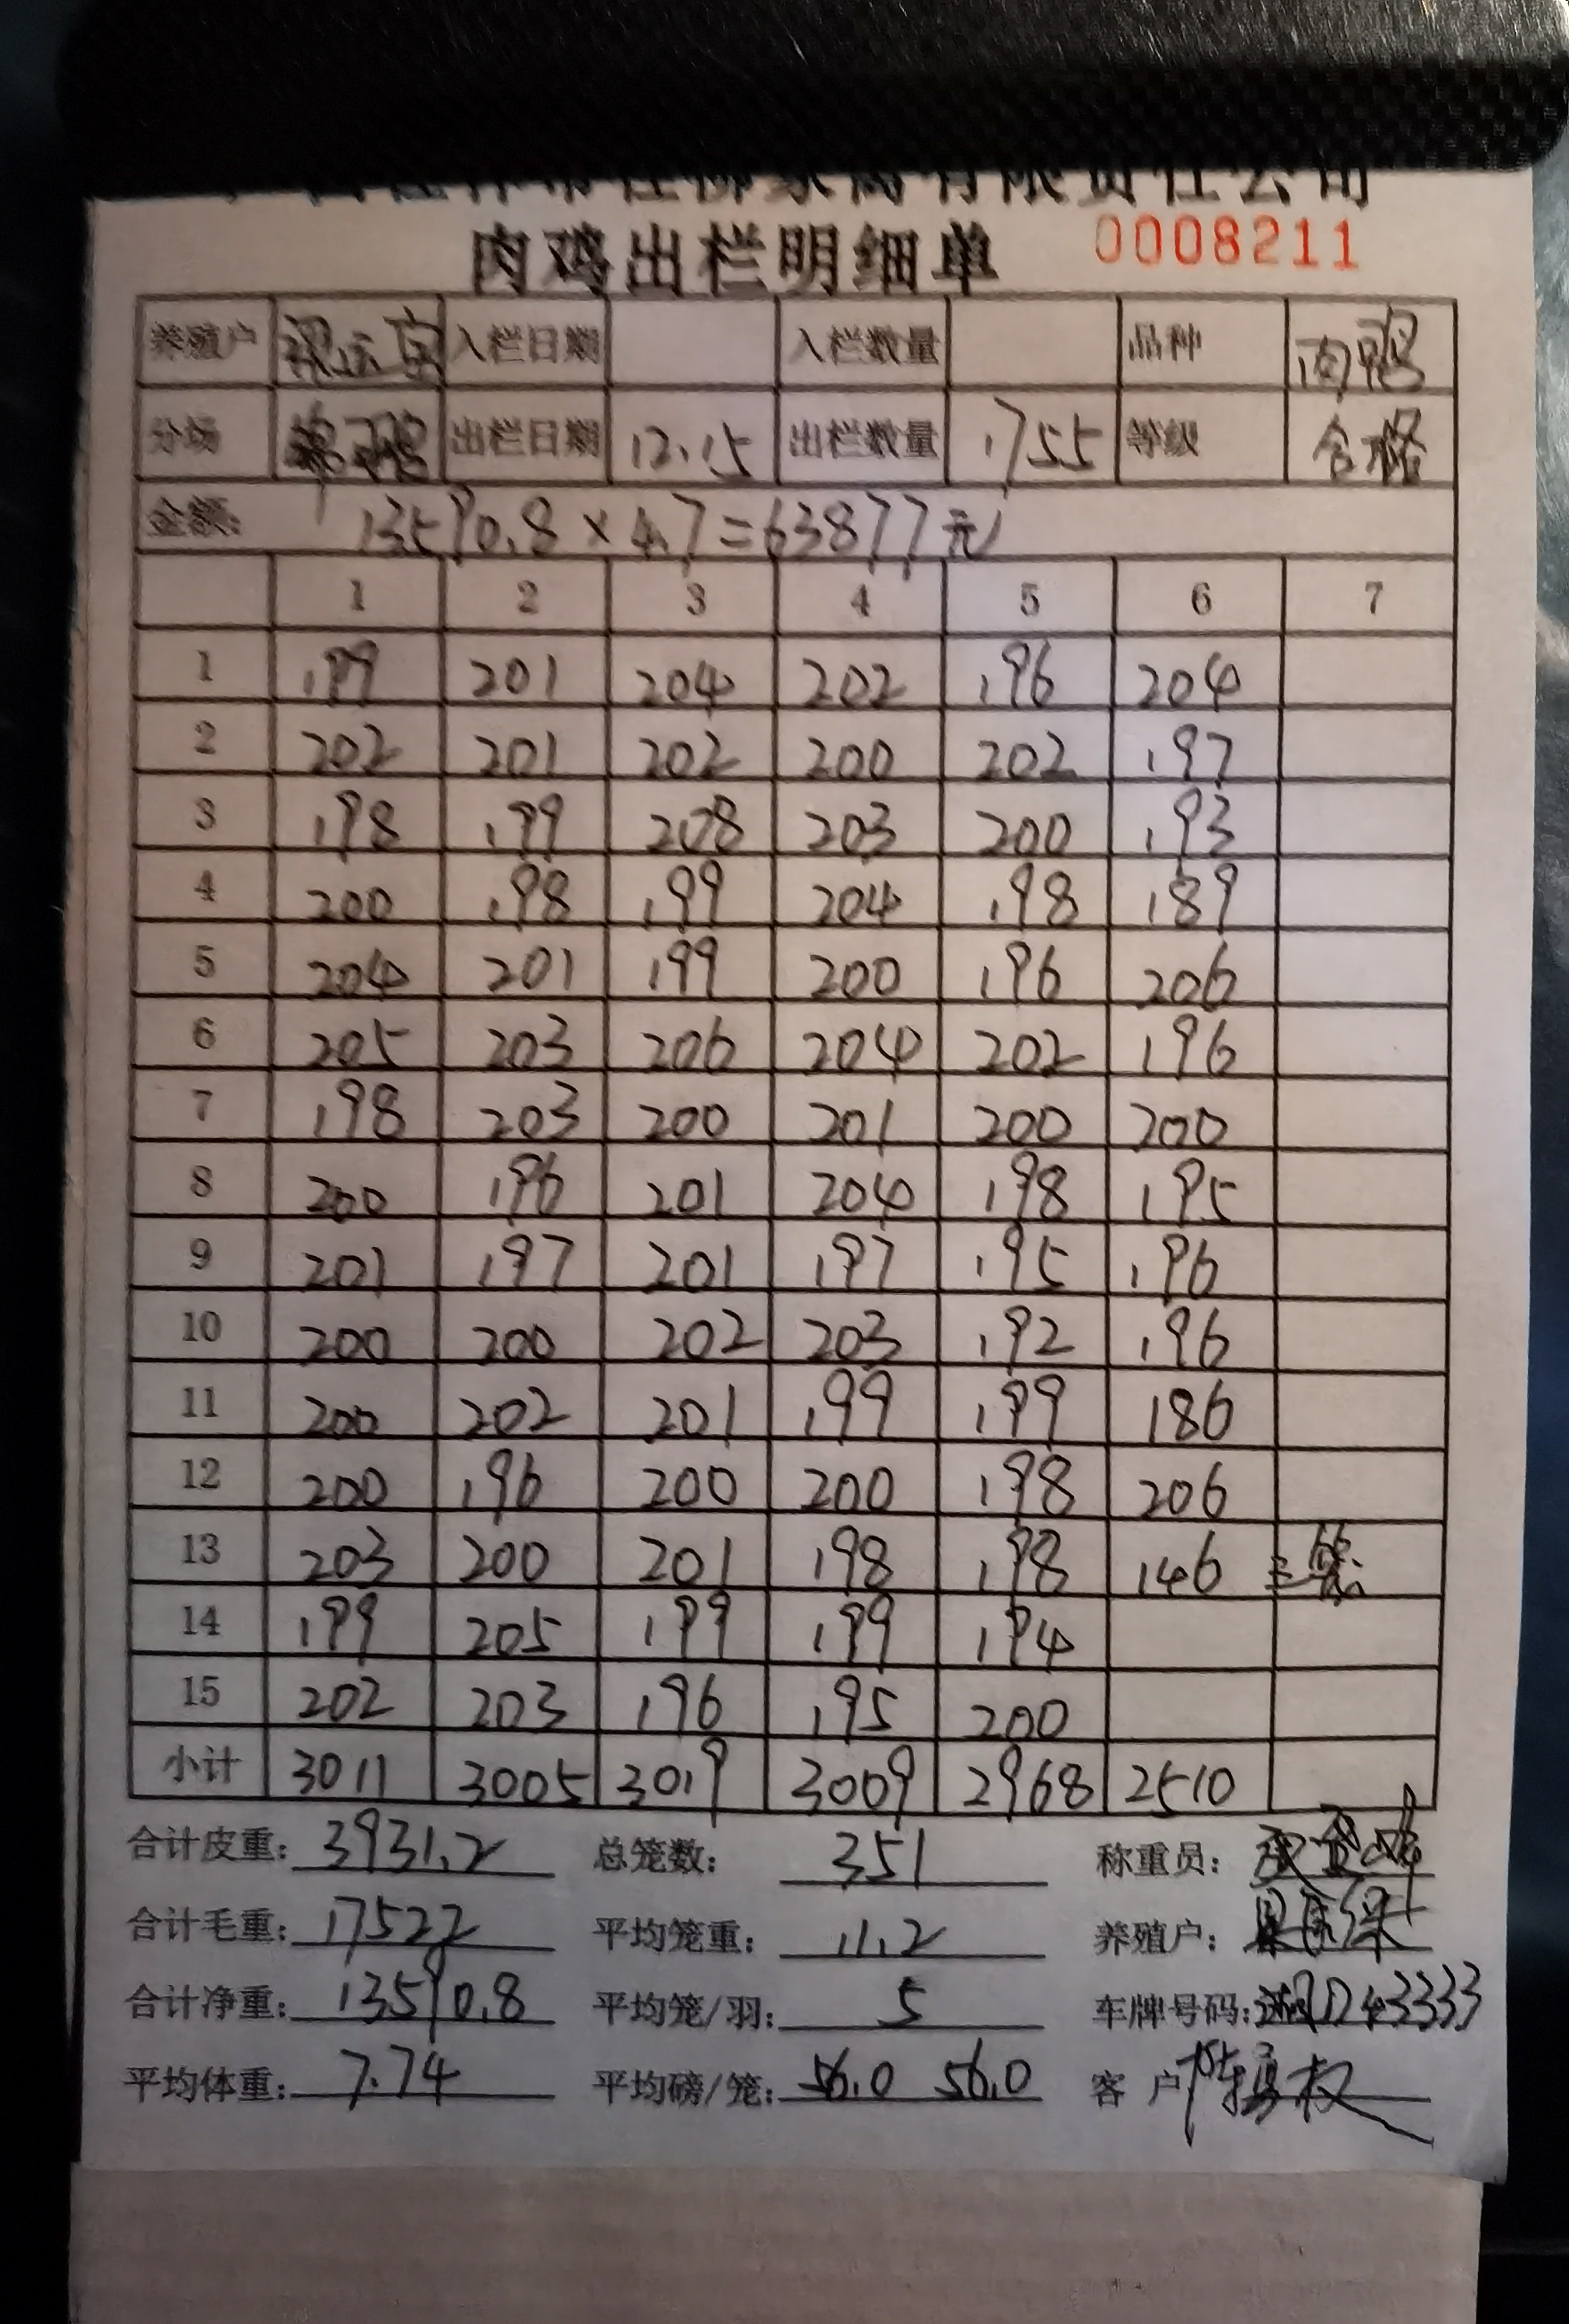 桂柳家禽有限责任公司
肉鸡出栏明细单 0008211
养殖户 入栏日期 入栏数量 品种 肉鸭
分场 出栏日期 12.15 出栏数量 1755 等级 合格
金额: 13590.8 × 4.7 = 63877元
1 2 3 4 5 6 7
1 199 201 204 202 196 204
2 202 201 202 200 202 197
3 198 199 208 203 200 193
4 200 198 199 204 198 189
5 204 201 199 200 196 206
6 205 203 206 204 202 196
7 198 203 200 201 200 200
8 200 196 201 204 198 195
9 201 197 201 197 195 196
10 200 200 202 203 192 196
11 200 202 201 199 199 186
12 200 196 200 200 198 206
13 203 200 201 198 198 146
14 199 205 199 199 194
15 202 203 196 195 200
小计 3011 3005 3019 3009 2968 2510
合计皮重: 3931.2 总笼数: 351 称重员:
合计毛重: 17522 平均笼重: 11.2 养殖户:
合计净重: 13590.8 平均笼/羽: 5 车牌号码: 湘D43333
平均体重: 7.74 平均磅/笼: 56.0 56.0 客 户